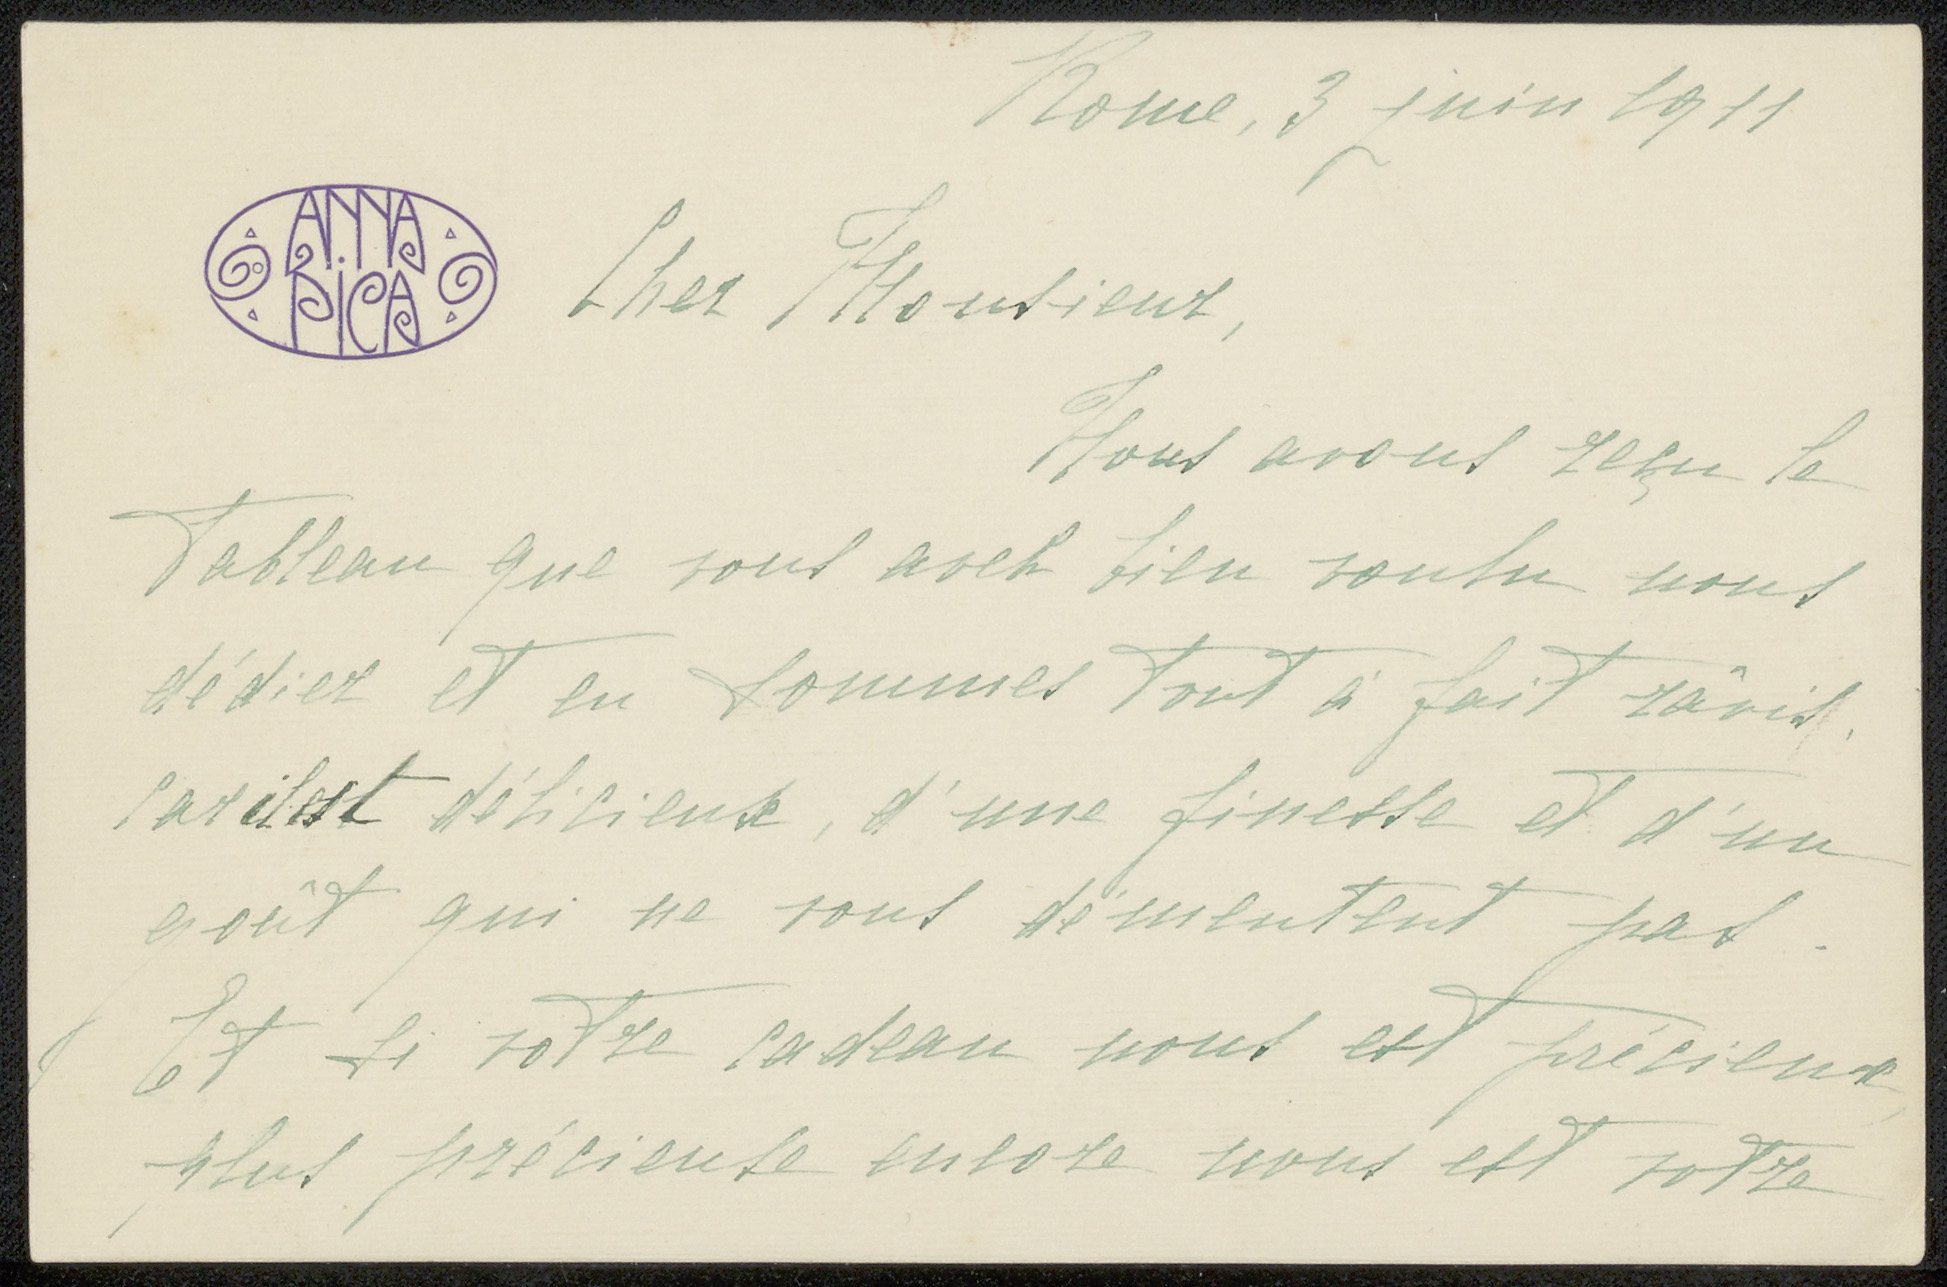 Rome, 3 juin 1911
ANNA
PICA
Cher Monsieur,
Nous avons reçu le
tableau que vous avez bien voulu nous
dédier et en sommes tout à fait râvis,
car il est délicieux, d'une finesse et d'un
goût qui ne vous démentent pas.
Et si votre cadeau nous est précieux,
plus précieuse encore nous est votre